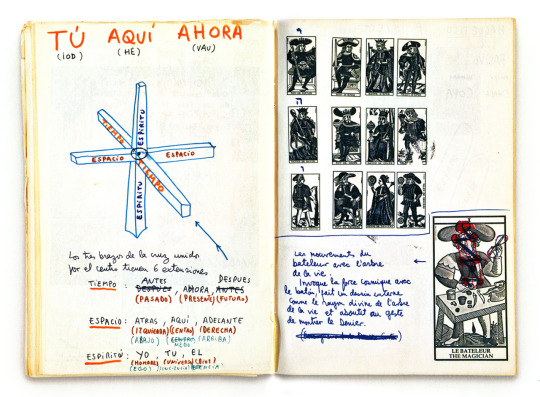 TÚ AQUÍ AHORA
(IOD) (HÉ) (VAU)
ESPÍRITU
TIEMPO
ESPACIO ESPACIO
TIEMPO
ESPÍRITU
Los tres brazos de la cruz unidos
por el centro tienen 6 extensiones
ANTES DESPUES
TIEMPO : DESPUES, AHORA, ANTES
(PASADO) (PRESENTE) (FUTURO)
ESPACIO: ATRAS, AQUÍ, ADELANTE
(IZQUIERDA) (CENTRO) (DERECHA)
(ABAJO) (ARRIBA)
MEDIO
ESPIRITU: YO, TU, EL
(HOMBRE) (UNIVERSO) (DIOS)
(EGO)
י
ה
י
Les mouvements du
bateleur avec l'arbre
de la vie.
Invoque la force cosmique avec
le bâton, fait un dessin externe
comme le rayon divin de l'arbre
de la vie et aboutit au geste
de montrer le Denier.
LE BATELEUR
THE MAGICIAN